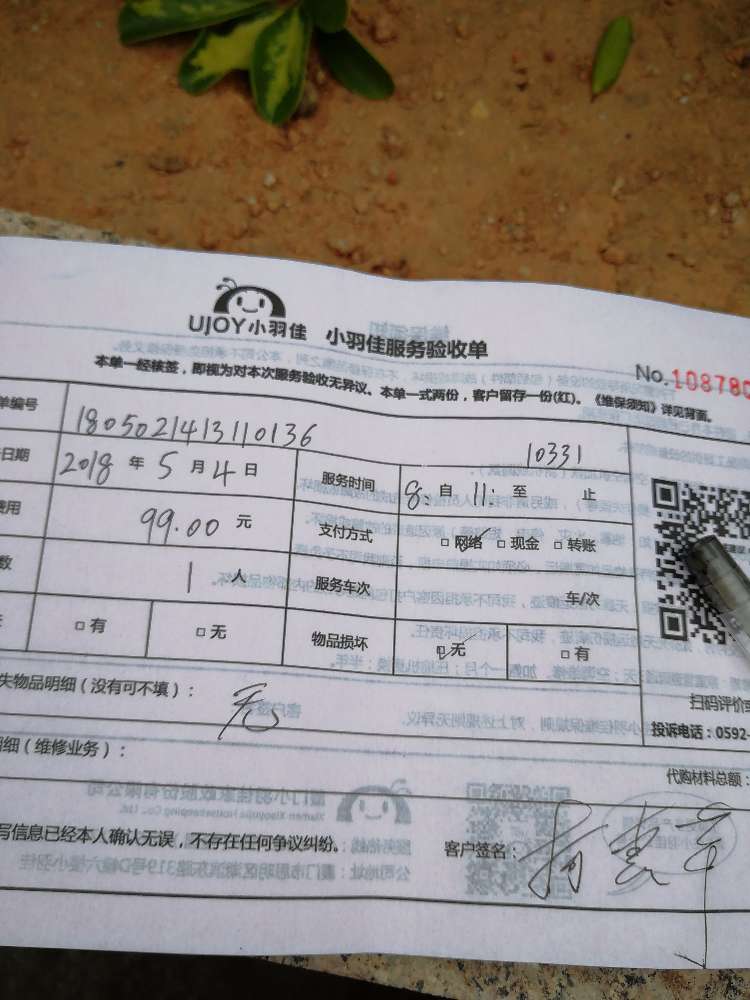 UJOY小羽佳 小羽佳服务验收单
No.108780
本单一经核签，即视为对本次服务验收无异议。本单一式两份，客户留存一份(红)。《维保须知》详见背面。
单编号 1805021413110136 10331
日期 2018 年 5 月 4 日 服务时间 8: 自 11: 至 止
费用 99.00 元 支付方式 □ 网络 □ 现金 □ 转账
数 1 人 服务车次 车/次
□ 有 □ 无 物品损坏 □ 无 □ 有
失物品明细（没有可不填）： 无
扫码评价或
投诉电话：0592-
明细（维修业务）：
代购材料总额：
写信息已经本人确认无误，不存在任何争议纠纷。 客户签名：